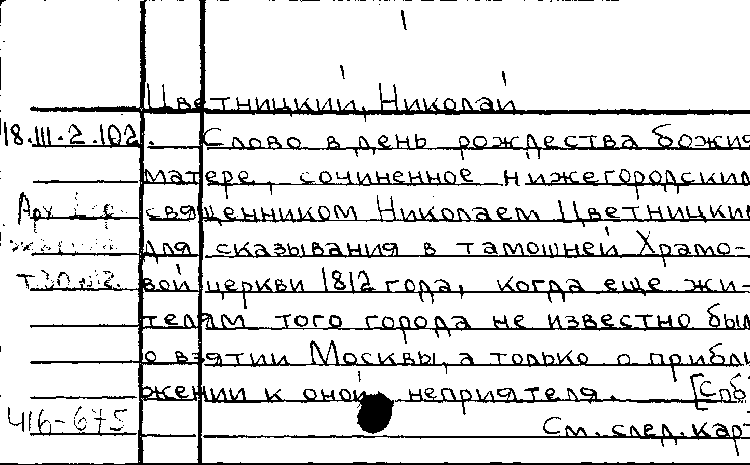 Цветницкий, Николай
18.III.2.102. Слово в день рождества божия
матере, сочиненное нижегородским
священником Николаем Цветницким
для сказывания в тамошней Храмо-
вой церкви 1812 года, когда еще жи-
телям того города не известно был
о взятии Москвы, а только о прибли
жении к оной неприятеля. [Спб
416-675
См. след. карт